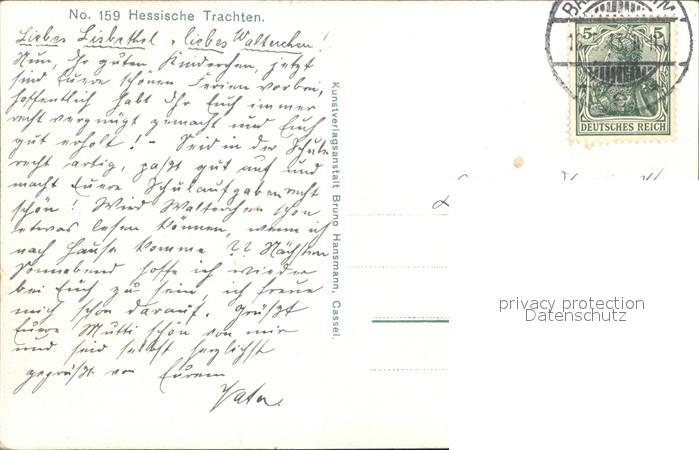 No. 159 Hessische Trachten.
Liebes Lisbethel, liebes Walterchen!
Nun, Ihr guten Kinderchen, jetzt
sind Euere schönen Ferien vorbei,
hoffentlich habt Ihr Euch immer
recht vergnügt gemacht und Euch
gut erholt! - Seid in der Schule
recht artig, paßt gut auf und
macht Euere Schulaufgaben recht
schön! Wird Walterchen schon
etwas lesen können, wenn ich
nach Hause komme?? Nächsten
Sonnabend hoffe ich wieder
bei Euch zu sein, ich freue
mich schon darauf. Grüßt
Euere Mutti schön von mir
und seid selbst herzlichst
gegrüßt von Eurem
Vater.
Kunstverlagsanstalt Bruno Hansmann, Cassel.
5 5
DEUTSCHES REICH
privacy protection
Datenschutz